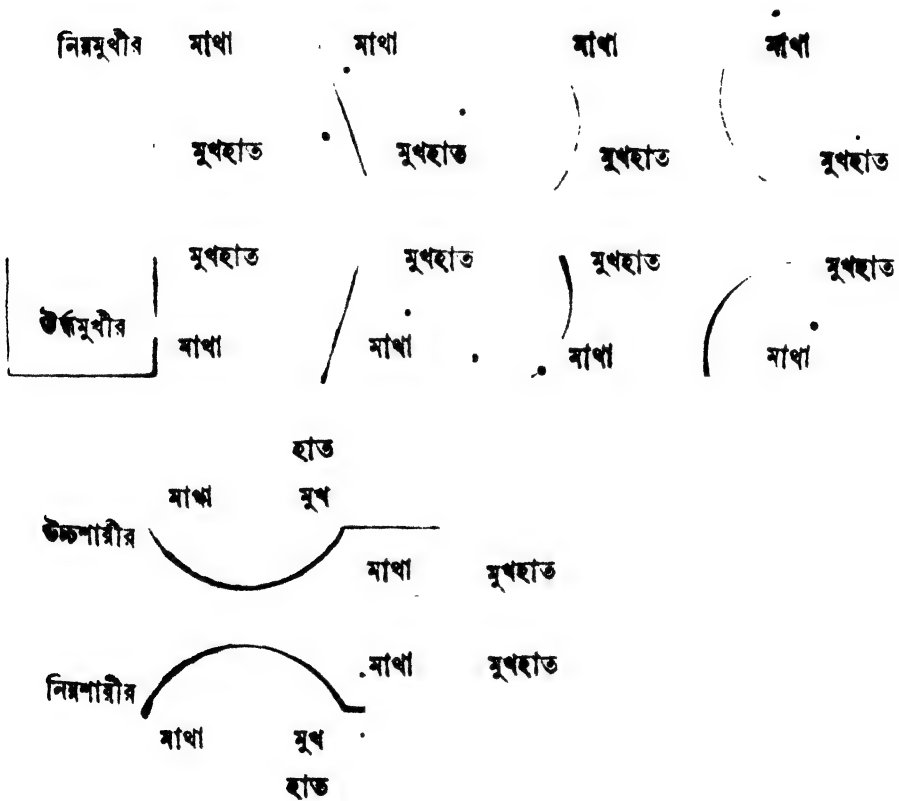 নিম্নমুখীর মাথা মাথা মাথা মাথা
মুখহাত মুখহাত মুখহাত মুখহাত
মুখহাত মুখহাত মুখহাত মুখহাত
ঊর্দ্ধমুখীর
মাথা মাথা মাথা মাথা
হাত
মাথা মুখ
উচ্চশারীর
মাথা মুখহাত
মাথা মুখহাত
নিম্নশারীর
মাথা মুখ
হাত